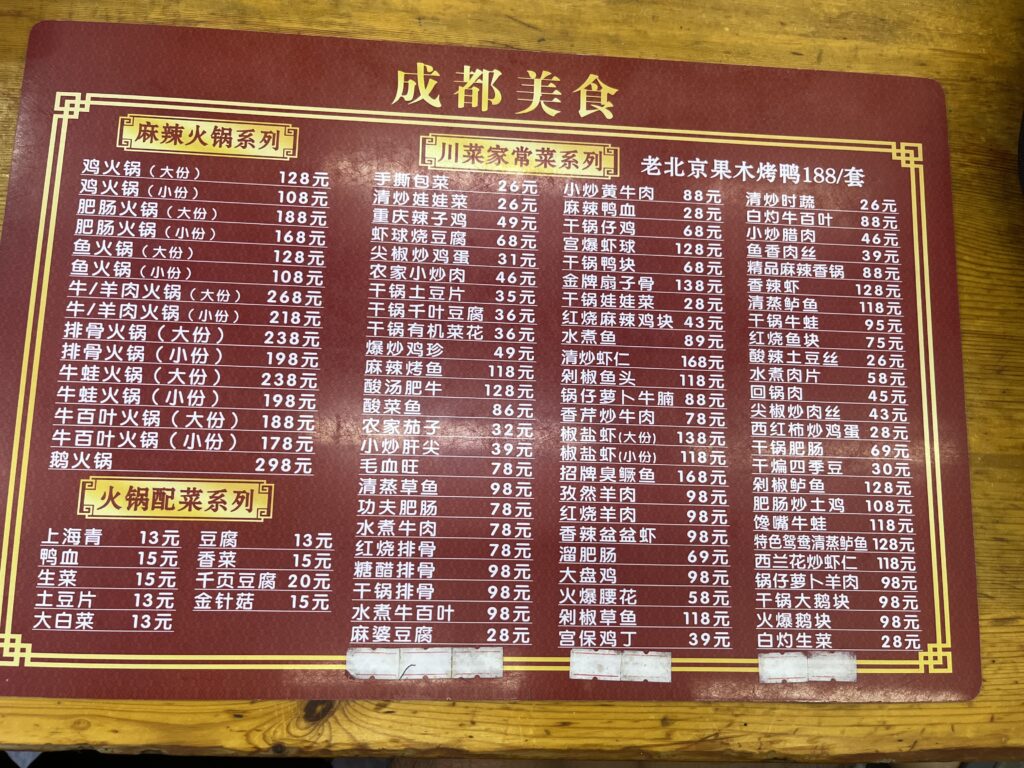 成都美食
麻辣火锅系列
鸡火锅（大份） 128元
鸡火锅（小份） 108元
肥肠火锅（大份） 188元
肥肠火锅（小份） 168元
鱼火锅（大份） 128元
鱼火锅（小份） 108元
牛/羊肉火锅（大份） 268元
牛/羊肉火锅（小份） 218元
排骨火锅（大份） 238元
排骨火锅（小份） 198元
牛蛙火锅（大份） 238元
牛蛙火锅（小份） 198元
牛百叶火锅（大份） 188元
牛百叶火锅（小份） 178元
鹅火锅 298元
火锅配菜系列
上海青 13元
鸭血 15元
生菜 15元
土豆片 13元
大白菜 13元
豆腐 13元
香菜 15元
千页豆腐 20元
金针菇 15元
川菜家常菜系列
老北京果木烤鸭188/套
手撕包菜 26元
清炒娃娃菜 26元
重庆辣子鸡 49元
虾球烧豆腐 68元
尖椒炒鸡蛋 31元
农家小炒肉 46元
干锅土豆片 35元
干锅千叶豆腐 36元
干锅有机菜花 36元
爆炒鸡珍 49元
麻辣烤鱼 118元
酸汤肥牛 128元
酸菜鱼 86元
农家茄子 32元
小炒肝尖 39元
毛血旺 78元
清蒸草鱼 98元
功夫肥肠 78元
水煮牛肉 78元
红烧排骨 78元
糖醋排骨 98元
干锅排骨 98元
水煮牛百叶 98元
麻婆豆腐 28元
小炒黄牛肉 88元
麻辣鸭血 28元
干锅仔鸡 68元
宫爆虾球 128元
干锅鸭块 68元
金牌扇子骨 138元
干锅娃娃菜 28元
红烧麻辣鸡块 43元
水煮鱼 89元
清炒虾仁 168元
剁椒鱼头 118元
锅仔萝卜牛腩 88元
香芹炒牛肉 78元
椒盐虾(大份) 138元
椒盐虾(小份) 118元
招牌臭鳜鱼 168元
孜然羊肉 98元
红烧羊肉 98元
香辣盆盆虾 98元
溜肥肠 69元
大盘鸡 98元
火爆腰花 58元
剁椒草鱼 118元
宫保鸡丁 39元
清炒时蔬 26元
白灼牛百叶 88元
小炒腊肉 46元
鱼香肉丝 39元
精品麻辣香锅 88元
香辣虾 128元
清蒸鲈鱼 118元
干锅牛蛙 95元
红烧鱼块 75元
酸辣土豆丝 26元
水煮肉片 58元
回锅肉 45元
尖椒炒肉丝 43元
西红柿炒鸡蛋 28元
干锅肥肠 69元
干煸四季豆 30元
剁椒鲈鱼 128元
肥肠炒土鸡 108元
馋嘴牛蛙 118元
特色鸳鸯清蒸鲈鱼 128元
西兰花炒虾仁 118元
锅仔萝卜羊肉 98元
干锅大鹅块 98元
火爆鹅块 98元
白灼生菜 28元